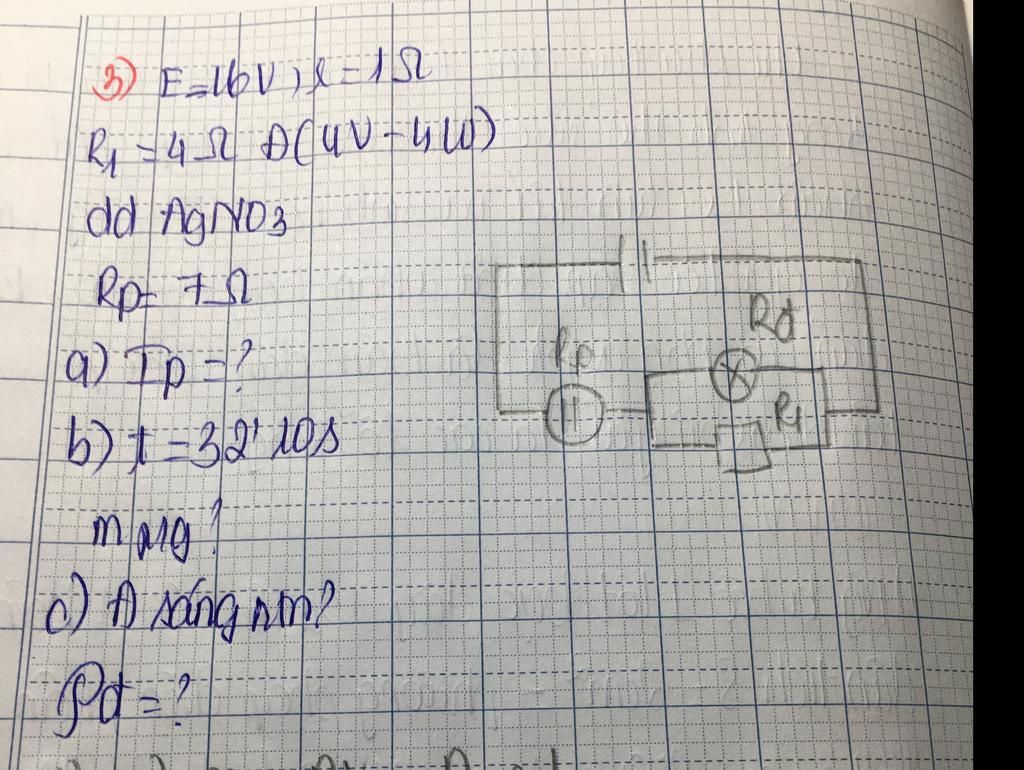 3) E=16V, r=1Ω
R1 = 4Ω Đ(4V-4W)
dd AgNO3
Rp= 7Ω
a) Ip=?
b) t=32' 10s
m Ag?
c) Đ sáng ntn?
Pđ=?
Rđ
Rp
R1